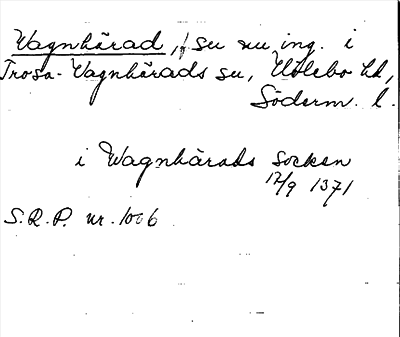 Vagnhärad, f. sn nu ing. i
Trosa-Vagnhärads sn, Hölebo hd,
Söderm. l.
i Wagnhärads socken
17/9 1371
S.R.P. nr. 1006